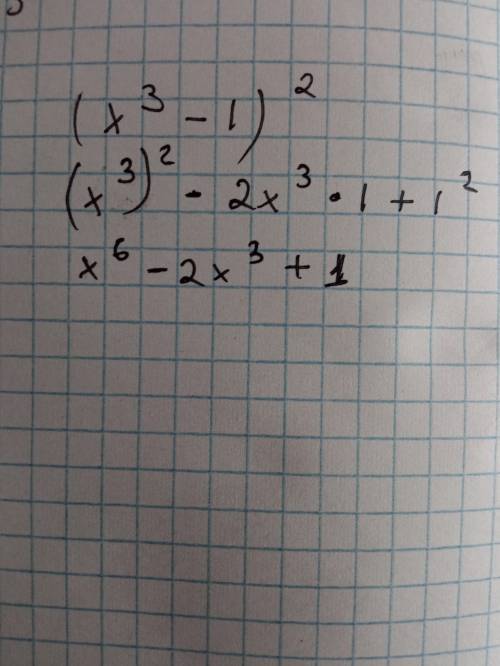 (x³ - 1)²
(x³)² - 2x³ · 1 + 1²
x⁶ - 2x³ + 1